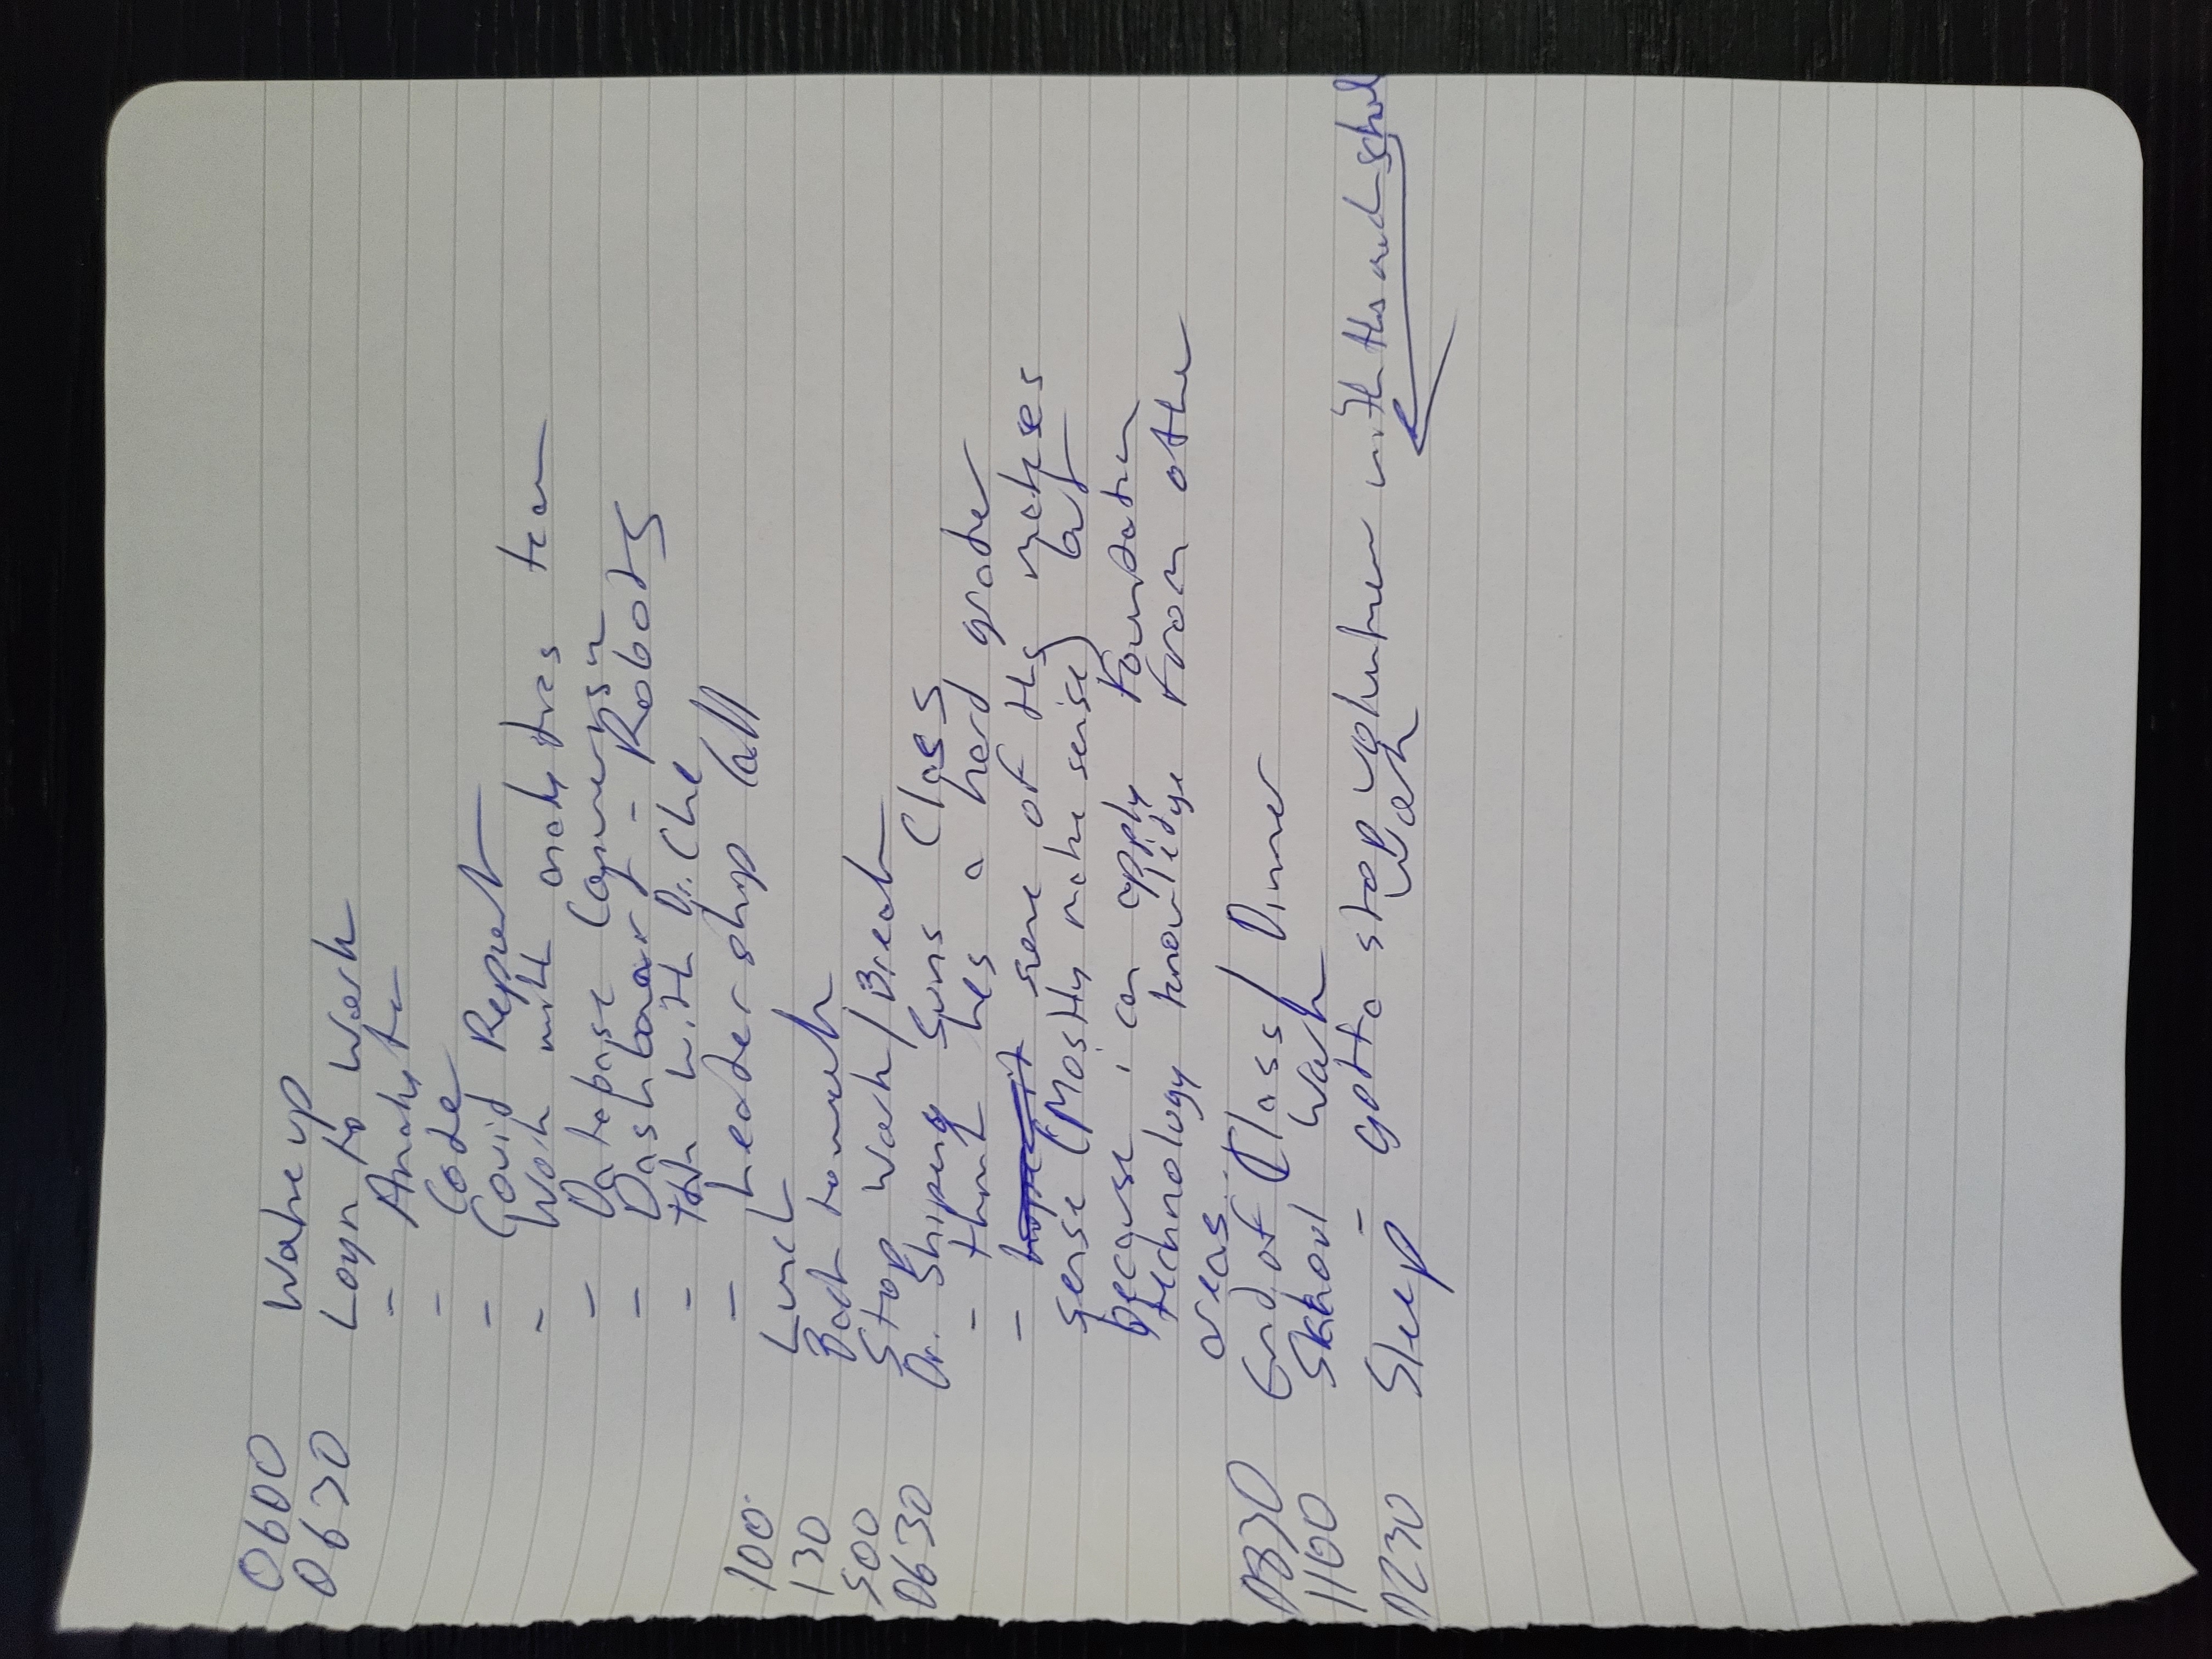 0600 Wake up
0630 Login to Work
- Code
- Covid Report
- Work with analytics team
- Database Conversion
- Dashboard - Robots
- with Dr.
- Leadership Call
100 Lunch
130 Back to work
500 Stop Work/Break
0630 Dr. Shiping Suns Class
- think hes a hard grader
- hope it some of this makes
sense (Mostly make sense) but
because i can apply Foundation
technology knowledge from other
areas...
0830 End of Class/Dinner
1100 School Work
- gotta stop volunteer with this much school
work
0230 Sleep